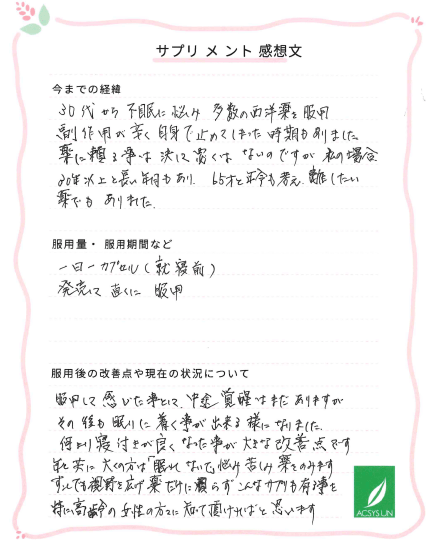 サプリメント感想文
今までの経緯
30代から不眠に悩み 多数の西洋薬を服用
副作用が辛く自身で止めてしまった時期もありました
薬に頼る事は決して悪くはないのですが 私の場合
20年以上と長い年月もあり 65才と年令も考え 離したい
薬でもありました.
服用量・服用期間など
一日一カプセル(就寝前)
発売して直ぐに 服用
服用後の改善点や現在の状況について
服用して感じた事として、中途覚醒はまだありますが
その後も眠りに着く事が出来る様になりました.
何より寝付きが良くなった事が大きな改善点です
年と共に 大くの方は「眠れない」悩み苦しみ薬をのみます
少しでも視野を広げ薬だけに頼らずこんなサプリも有る事を
特に高齢の女性の方々に知って頂ければと思います
ACSYS IJN